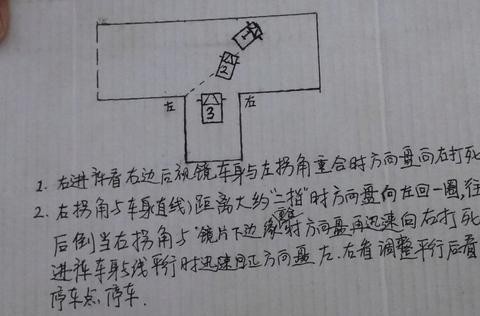 1
2
左 3 右
1. 右进库看右边后视镜车身与左拐角重合时方向盘向右打死
2. 右拐角与车身(直线)距离大约"二拦"时方向盘向左回一圈,往
后倒当右拐角与镜片下边缘 时方向盘再迅速向右打死
进库车身与线平行时迅速回正方向盘 左.右看 调整平行后看
停车点.停车.